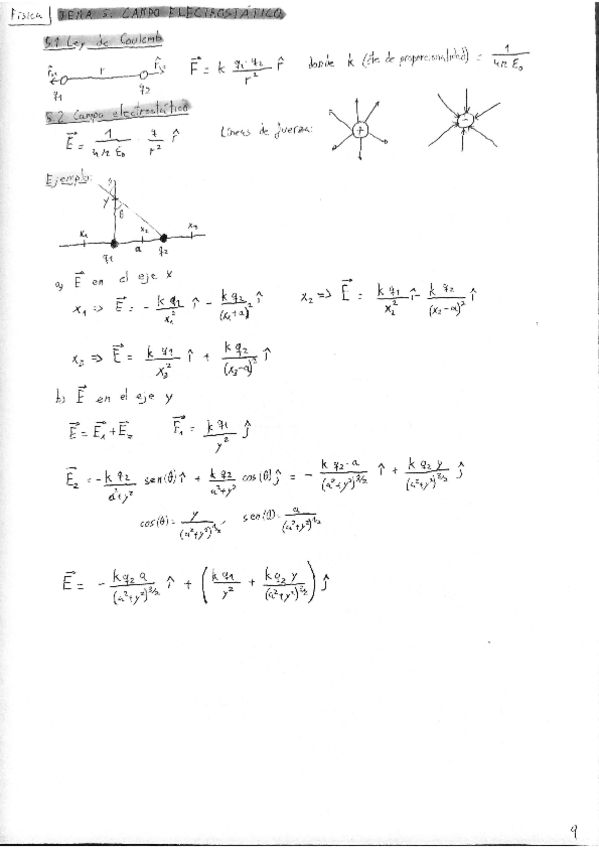 Física TEMA 5: CAMPO ELECTROSTÁTICO
5.1 Ley de Coulomb
r q1 q2 F⃗ = k (q1·q2)/r² r̂ donde k (cte de proporcionalidad) = 1/(4π ε0)
5.2 Campo electrostático
E⃗ = 1/(4π ε0) q/r² r̂ Líneas de fuerza: + -
Ejemplo:
y θ
x1 x2 x3
q1 a q2
a) E⃗ en el eje x
x1 => E⃗ = - (k q1)/x1² î - (k q2)/(x1+a)² î x2 => E⃗ = (k q1)/x2² î - (k q2)/(x2-a)² î
x3 => E⃗ = (k q1)/x3² î + (k q2)/(x3-a)² î
b) E⃗ en el eje y
E⃗ = E⃗1 + E⃗2 E⃗1 = (k q1)/y² ĵ
E⃗2 = - (k q2)/(a²+y²) sen(θ) î + (k q2)/(a²+y²) cos(θ) ĵ = - (k q2·a)/(a²+y²)^3/2 î + (k q2 y)/(a²+y²)^3/2 ĵ
cos(θ) = y/(a²+y²)^1/2, sen(θ) = a/(a²+y²)^1/2
E⃗ = - (k q2 a)/(a²+y²)^3/2 î + ( (k q1)/y² + (k q2 y)/(a²+y²)^3/2 ) ĵ
9